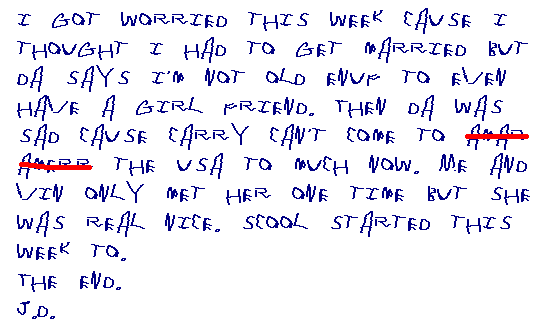 I GOT WORRIED THIS WEEK CAUSE I
THOUGHT I HAD TO GET MARRIED BUT
DA SAYS I'M NOT OLD ENUF TO EVEN
HAVE A GIRL FRIEND. THEN DA WAS
SAD CAUSE CARRY CAN'T COME TO AMAR
AMERR THE USA TO MUCH NOW. ME AND
VIN ONLY MET HER ONE TIME BUT SHE
WAS REAL NICE. SCOOL STARTED THIS
WEEK TO.
THE END.
J.D.